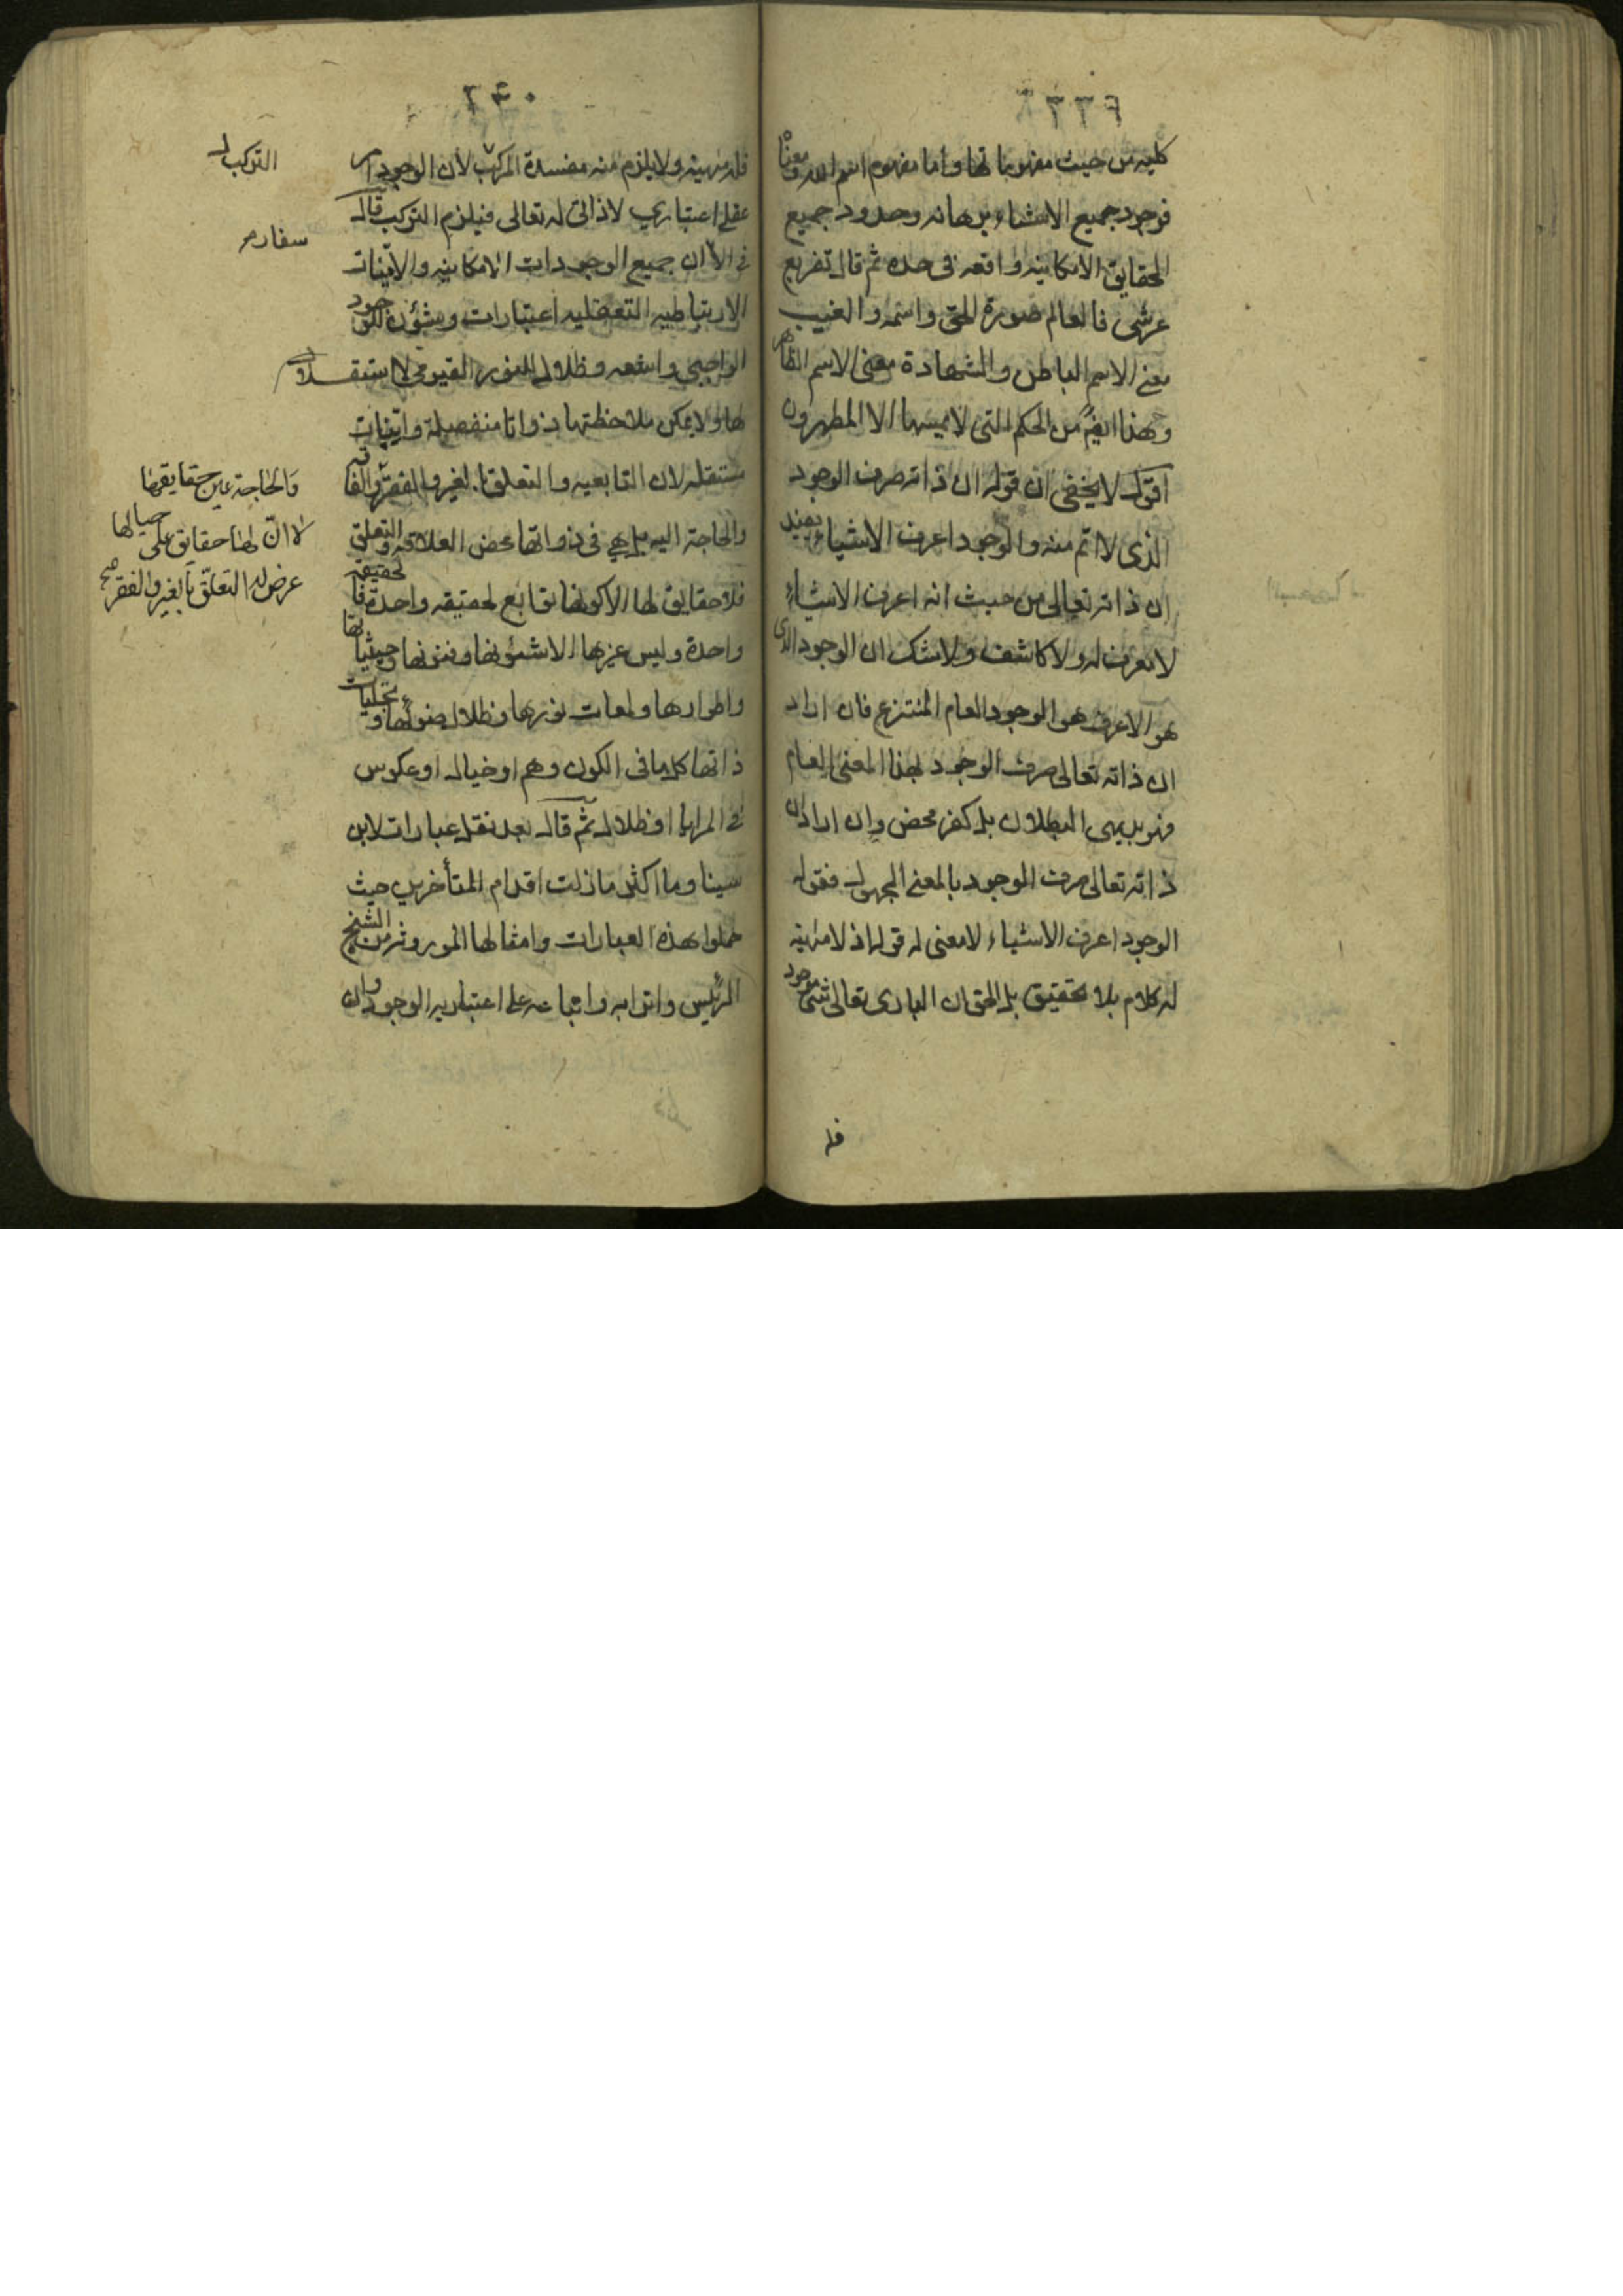 ٢٣٩
كليه من حيث مفهوماتها واما مفهوم اسم الله ومعناه
فوجود جميع الاشياء برهانه وحدود جميع
الحقايق الامكانيه واقعه فى حده ثم قال تفريع
عرشى فالعالم صورة الحق واسمه والغيب
معنى الاسم الباطن والشهادة معنى الاسم الظاهر
وهذا ايضا من الحكم التى لا يمسها الا المطهرون
اقول لا يخفى ان قوله ان ذاته صرف الوجود
الذى لا اتم منه والوجود اعرف الاشياء يفيد
ان ذاته تعالى من حيث انه اعرف الاشياء
لا معرف له ولا كاشف ولا شك ان الوجود الذى
هو الاعرف هو الوجود العام المنتزع فان اراد
ان ذاته تعالى صرف الوجود بهذا المعنى العام
فهو بديهى البطلان بل كفر محض وان اراد ان
ذاته تعالى صرف الوجود بالمعنى المجهول فقوله
الوجود اعرف الاشياء لا معنى له قوله اذ لا مهية
له كلام بلا تحقيق بل الحق ان البارى تعالى شئ موجود
فله
٢٤٠
فله مهية ولا يلزم منه مفسدة المركب لان الوجود امر
عقلى اعتبارى لا ذاتى له تعالى فيلزم التركب قال
فى الا ان جميع الوجودات الامكانيه والانيات
الارتباطيه التعلقيه اعتبارات وشؤن للوجود
الواجبى واشعه وظلال للنور القيومى لا استقلال
لها ولا يمكن ملاحظتها ذواتا منفصلة وانيات
مستقله لان التابعيه والتعلق بالغير والفقر والفاقه
والحاجة اليه بل هى فى ذواتها محض العلاقه والتعلق
فلا حقايق لها الا كونها توابع لحقيقه واحدة فالحقيقة
واحدة وليس غيرها الا شئونها وفنونها وحيثياتها
واطوارها ولمعات نورها وظلال ضوئها وتجليات
ذاتها كل ما فى الكون وهم او خيال او عكوس
فى المرايا او ظلال ثم قال بعد نقل عبارات لابن
سينا وما اكثر ما زلت اقدام المتأخرين حيث
حملوا هذه العبارات وامثالها الموروثه من الشيخ
الرئيس واترابه واتباعه على اعتباريه الوجود وان
التركب
سفارمر
والحاجة عين حقايقها
لا ان لها حقايق على حيالها
عرض لها التعلق بالغير والفقر صح